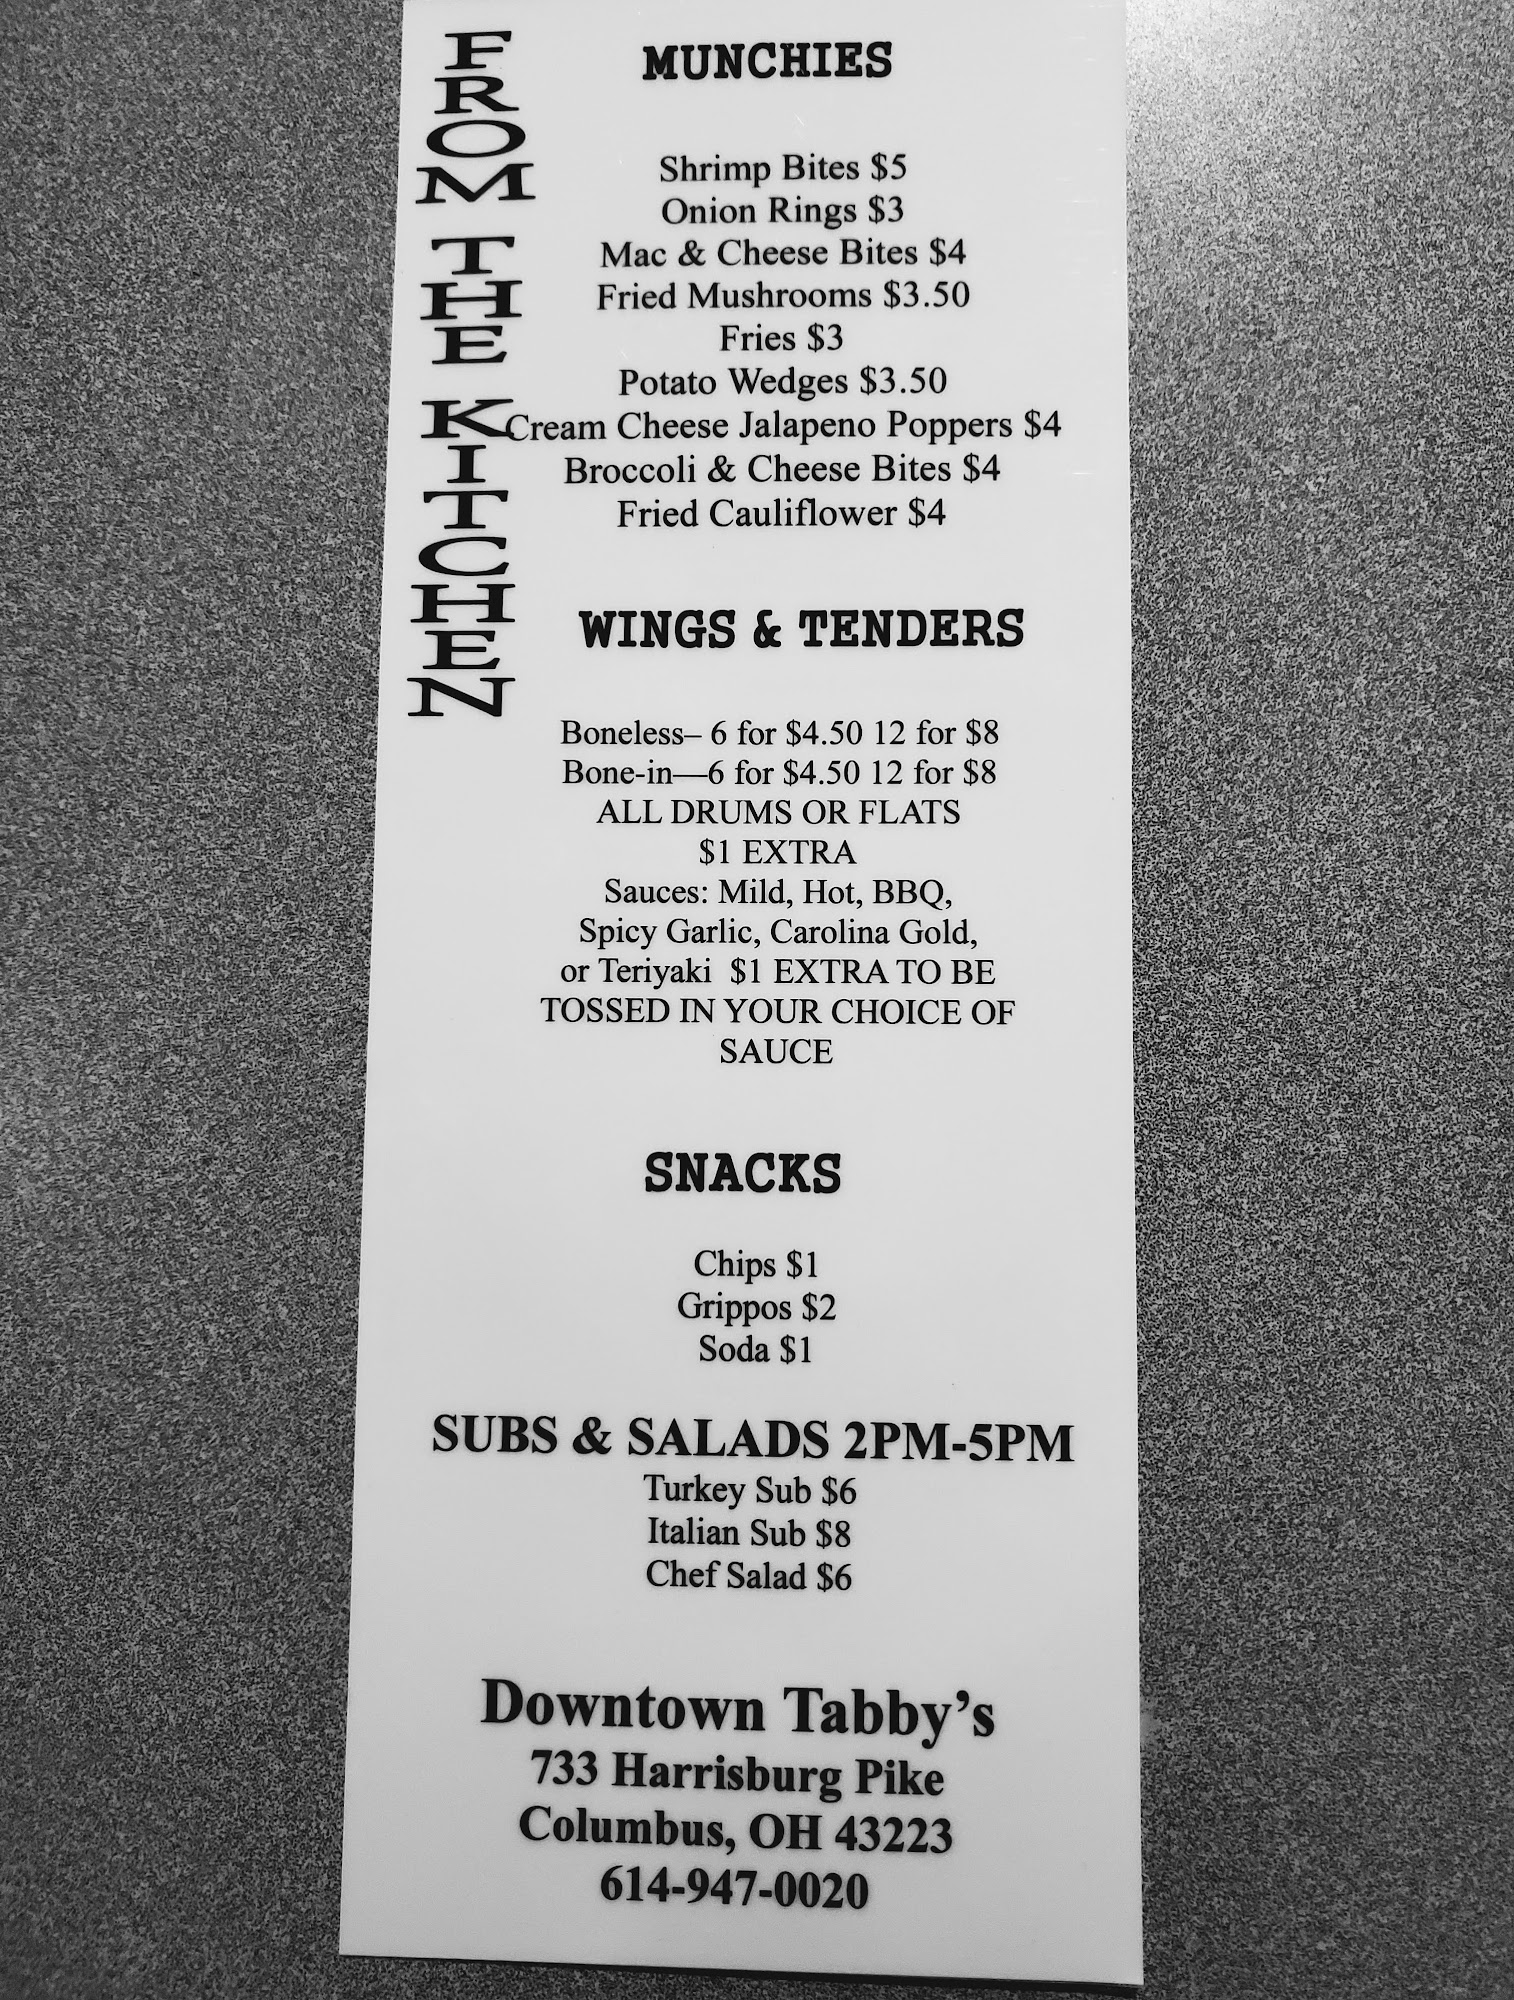 FROM THE KITCHEN
MUNCHIES
Shrimp Bites $5
Onion Rings $3
Mac & Cheese Bites $4
Fried Mushrooms $3.50
Fries $3
Potato Wedges $3.50
Cream Cheese Jalapeno Poppers $4
Broccoli & Cheese Bites $4
Fried Cauliflower $4
WINGS & TENDERS
Boneless– 6 for $4.50 12 for $8
Bone-in—6 for $4.50 12 for $8
ALL DRUMS OR FLATS
$1 EXTRA
Sauces: Mild, Hot, BBQ,
Spicy Garlic, Carolina Gold,
or Teriyaki  $1 EXTRA TO BE
TOSSED IN YOUR CHOICE OF
SAUCE
SNACKS
Chips $1
Grippos $2
Soda $1
SUBS & SALADS 2PM-5PM
Turkey Sub $6
Italian Sub $8
Chef Salad $6
Downtown Tabby’s
733 Harrisburg Pike
Columbus, OH 43223
614-947-0020